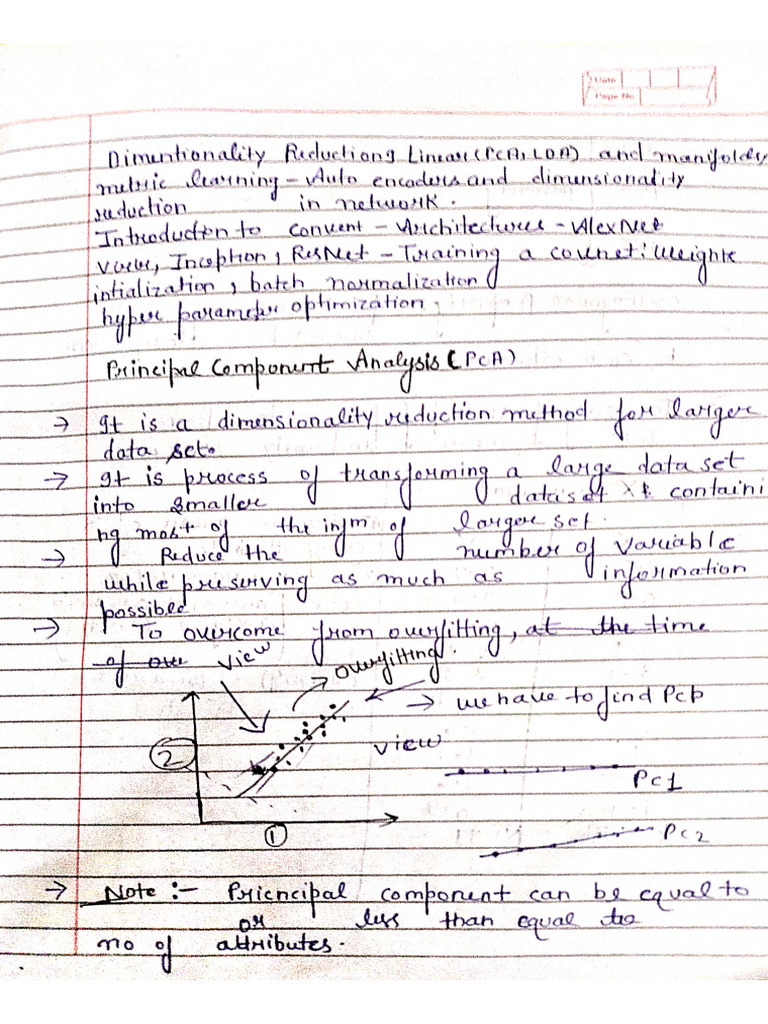 Date
Page No.
Dimentionality Reductions Linear (PCA, LDA) and manifolds
metric learning - Auto encoders and dimensionality
reduction in network.
Introducton to convent - Architectures - AlexNet
Inception, ResNet - Training a covnet: Weights
intialization, batch normalization
hyper parameter optimization.
Principal Component Analysis (PCA)
→ It is a dimensionality reduction method for larger
data set.
→ It is process of transforming a large data set
into smaller data set containi
ng most of the infm of larger set.
→ Reduce the number of variable
while preserving as much as information
possible
→ To overcome from overfitting, at the time
of ove view overfitting.
→ we have to find PCP
② view
PC1
①
PC2
→ Note :- Priencipal component can be equal to
or less than equal to
no of attributes.